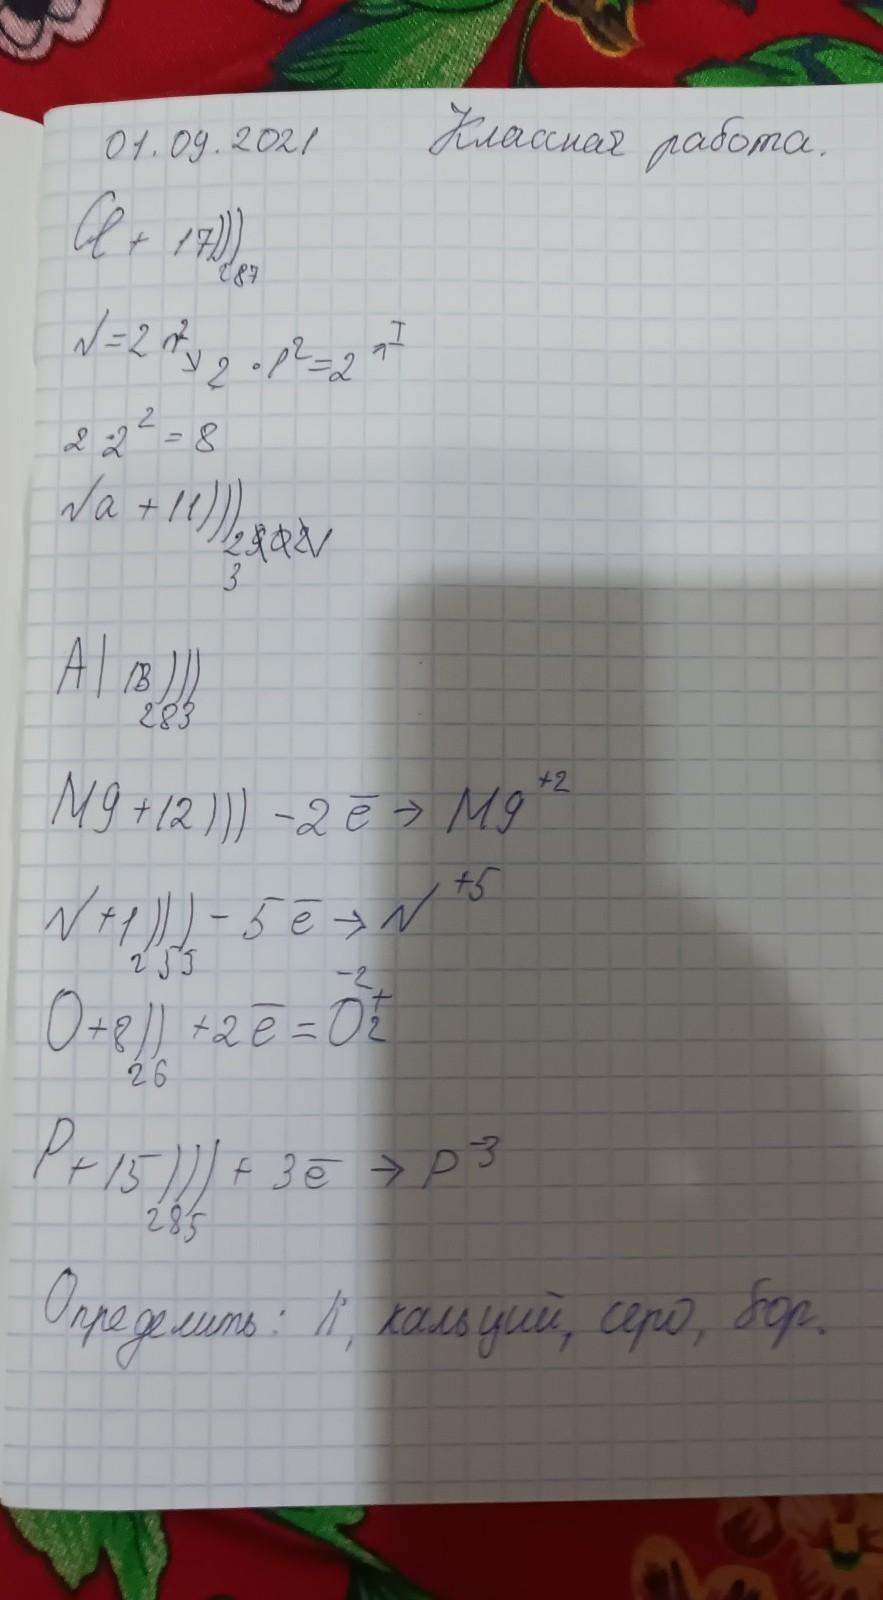 01.09.2021 Классная работа.
Cl + 17)))
287
N=2n² 2 · 1² = 2 I
2 · 2² = 8
Na + 11)))
2
3
Al 13)))
283
Mg +12))) -2ē → Mg⁺²
N +1))) - 5ē → N⁺⁵
255
O +8)) +2ē = O₂⁺ -2
26
P +15))) + 3ē → P⁻³
285
Определить: кальций, серо, бор.